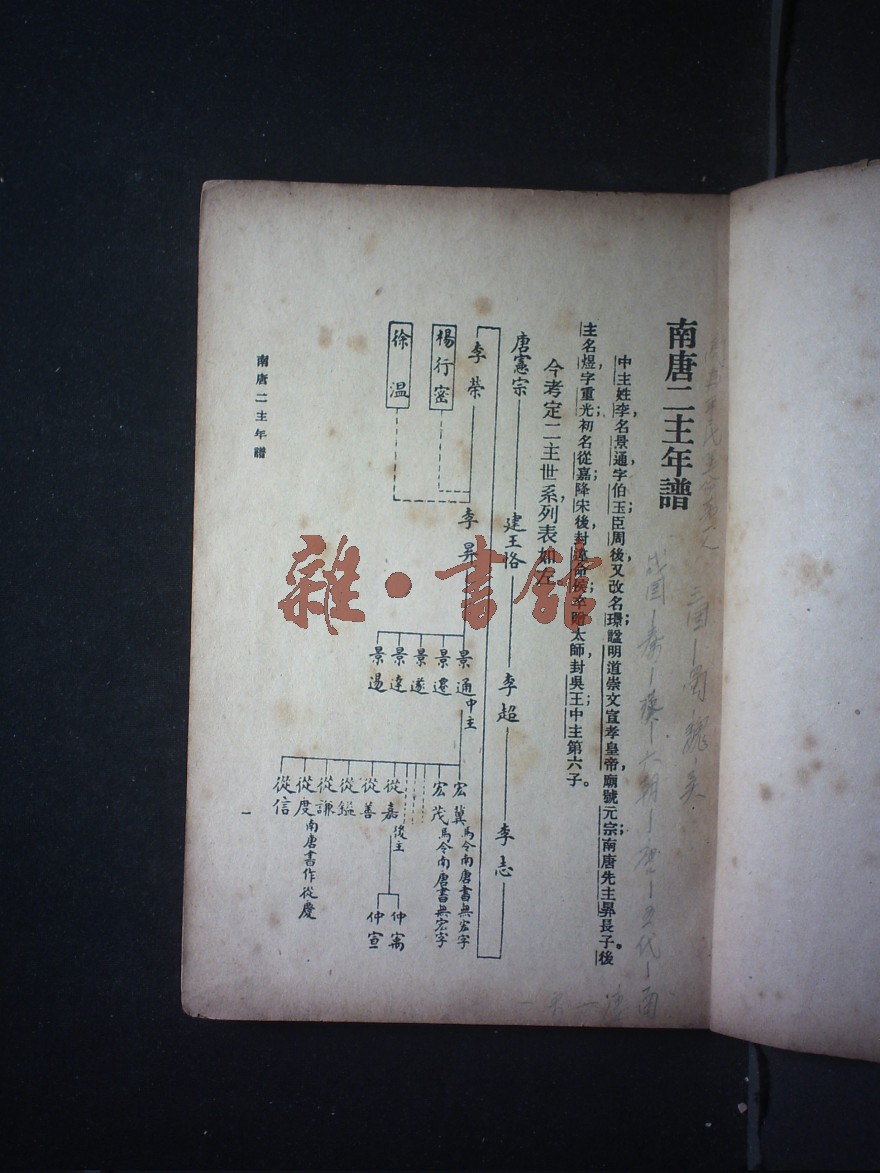 南唐二主年譜
中主姓李，名景通，字伯玉；臣周後，又改名璟；諡明道崇文宣孝皇帝，廟號元宗；南唐先主昇長子。後
主名煜，字重光；初名從嘉；降宋後，封違命侯；卒贈太師，封吳王；中主第六子。
今考定二主世系，列表如左
唐憲宗 建王恪 李超 李志
李榮 李昪
楊行密
徐溫
景通中主
景遷
景遂
景達
景逷
宏冀馬令南唐書無宏字
宏茂馬令南唐書無宏字
從嘉後主
從善
從鎰
從謙
從度南唐書作從慶
從信
仲寓
仲宣
南唐二主年譜
一
雜·書館
三國—蜀、魏、吳
戰國—秦—漢—六朝—唐—五代—南